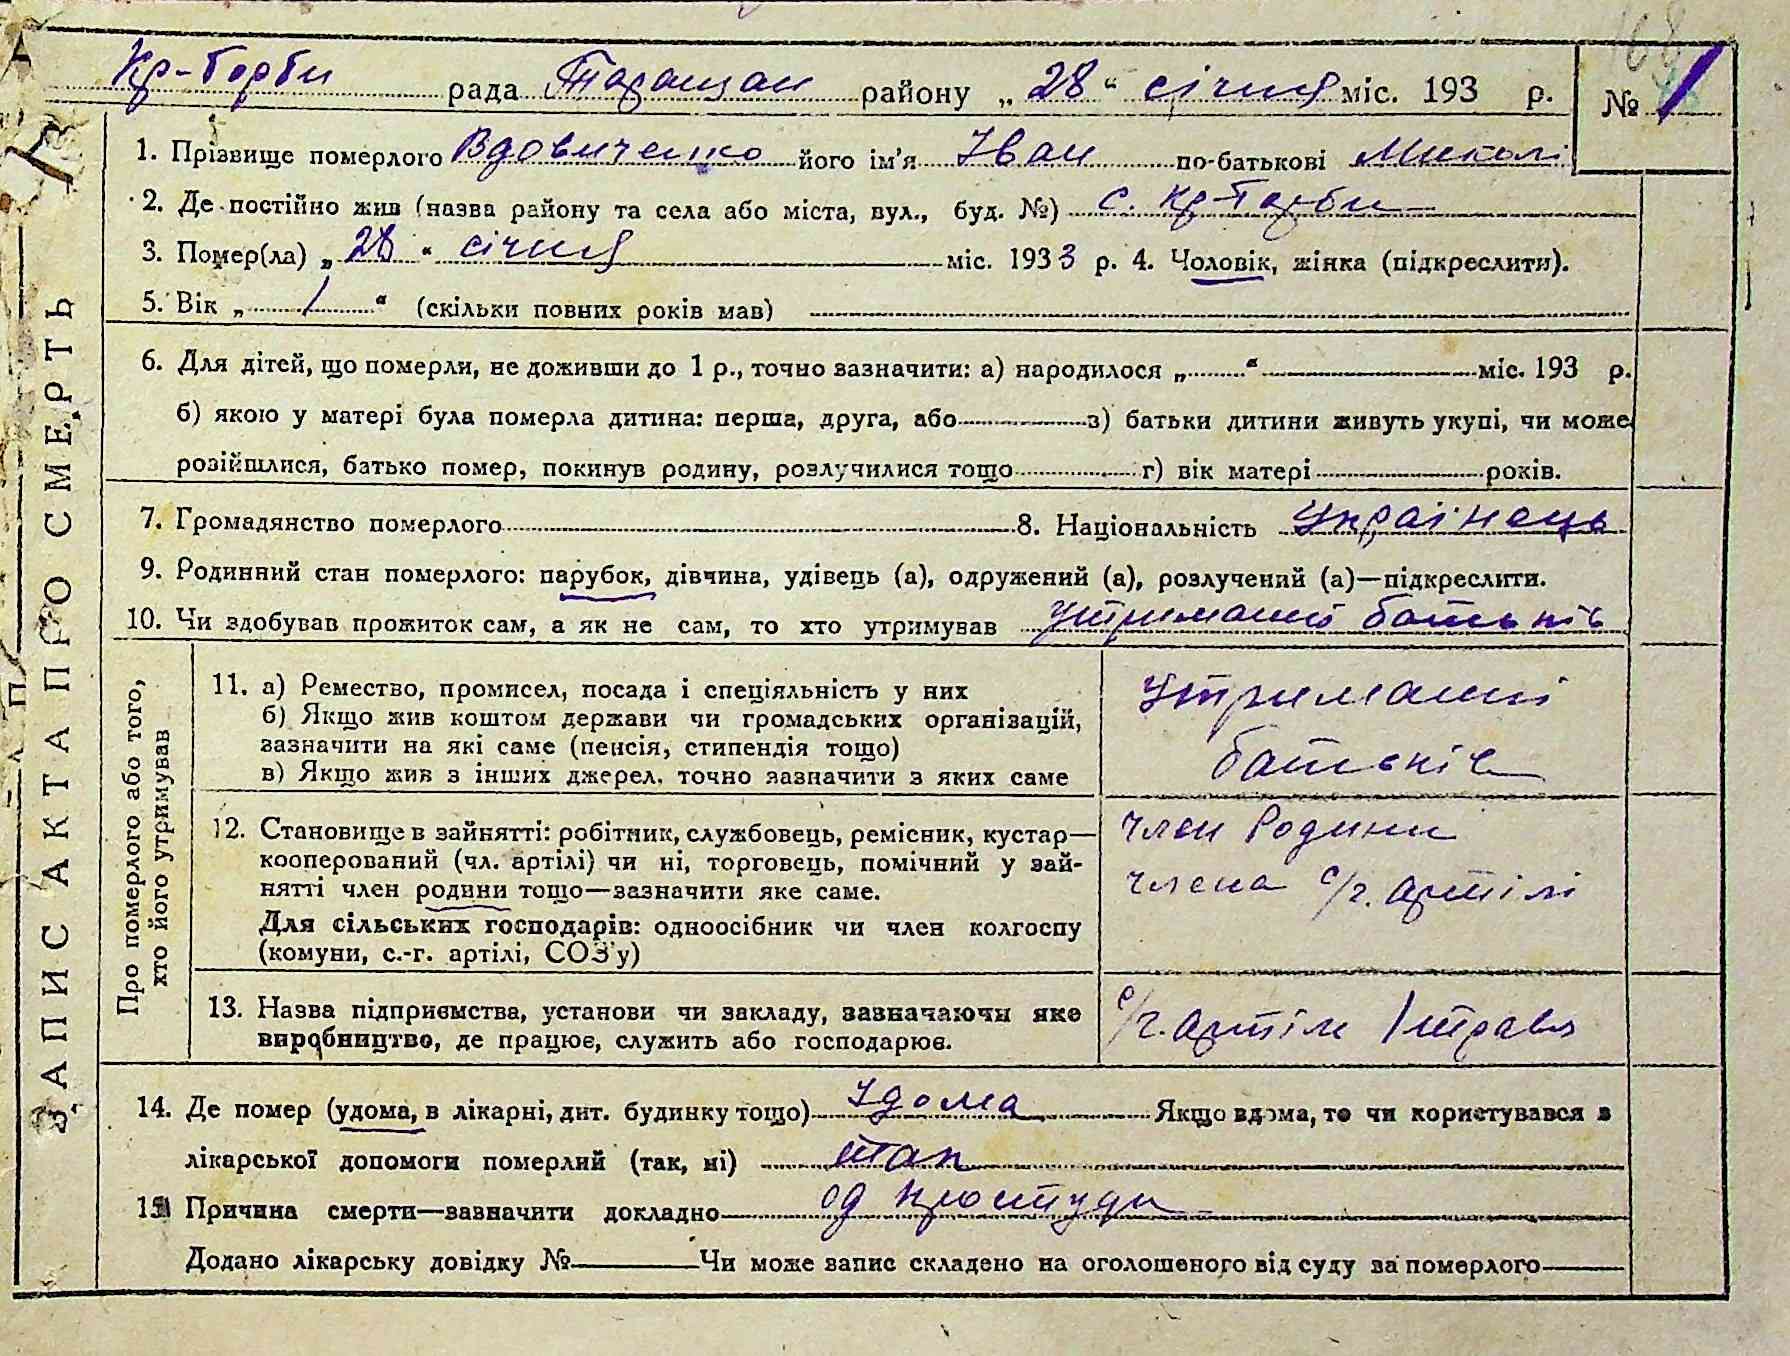 Кр-Торби рада Таращан району „28“ січня міс. 193 р. № 1
1. Прізвище померлого Вдовиченко його ім'я Іван по-батькові Миколі
2. Де постійно жив (назва району та села або міста, вул., буд. №) с. Кр-Торби
3. Помер(ла) „28“ січня міс. 1933 р. 4. Чоловік, жінка (підкреслити).
5. Вік „1“ (скільки повних років мав)
6. Для дітей, що померли, не доживши до 1 р., точно зазначити: а) народилося „ “ міс. 193 р.
б) якою у матері була померла дитина: перша, друга, або з) батьки дитини живуть укупі, чи може
розійшлися, батько помер, покинув родину, розлучилися тощо г) вік матері років.
7. Громадянство померлого 8. Національність Українець
9. Родинний стан померлого: парубок, дівчина, удівець (а), одружений (а), розлучений (а)—підкреслити.
10. Чи здобував прожиток сам, а як не сам, то хто утримував утриманні батьків
ЗАПИС АКТА ПРО СМЕРТЬ
Про померлого або того,
хто його утримував
11. а) Ремество, промисел, посада і спеціяльність у них
б) Якщо жив коштом держави чи громадських організацій,
зазначити на які саме (пенсія, стипендія тощо)
в) Якщо жив з інших джерел, точно зазначити з яких саме
утриманні
батьків
12. Становище в зайнятті: робітник, службовець, ремісник, кустар—
кооперований (чл. артілі) чи ні, торговець, помічний у зай-
нятті член родини тощо—зазначити яке саме.
Для сільських господарів: одноосібник чи член колгоспу
(комуни, с.-г. артілі, СОЗ'у)
член Родини
члена с/г. артілі
13. Назва підприємства, установи чи закладу, зазначаючи яке
виробництво, де працює, служить або господарює.
с/г. артіль 1 травня
14. Де помер (удома, в лікарні, дит. будинку тощо) Удома Якщо вдома, то чи користувався в
лікарської допомоги померлий (так, ні) так
15 Причина смерти—зазначити докладно од простуди
Додано лікарську довідку № Чи може запис складено на оголошеного від суду за померлого